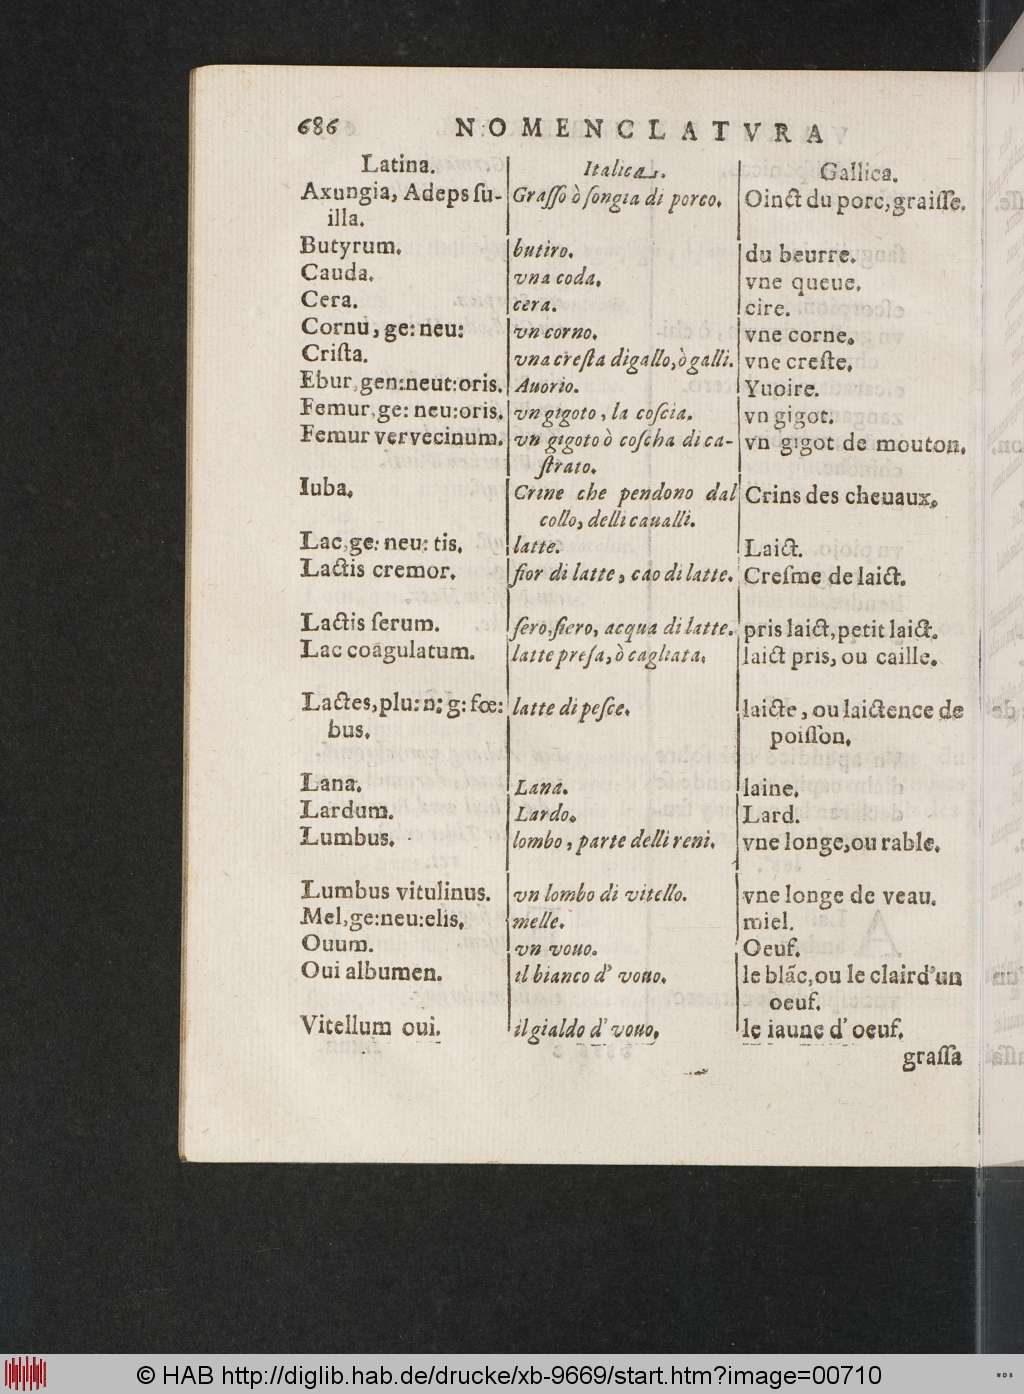 686 NOMENCLATVRA
Latina. Italica. Gallica.
Axungia, Adeps ſu- Graſſo ò ſongia di porco. Oinct du porc, graiſſe.
illa.
Butyrum. butiro. du beurre.
Cauda. vna coda. vne queue.
Cera. cera. cire.
Cornu, ge: neu: vn corno. vne corne.
Criſta. vna creſta di gallo, ò galli. vne creſte.
Ebur, gen: neut: oris. Auorio. Yuoire.
Femur, ge: neu: oris. vn gigoto, la coſcia. vn gigot.
Femur vervecinum. vn gigoto ò coſcha di ca- vn gigot de mouton.
ſtrato.
Iuba. Crine che pendono dal Crins des cheuaux.
collo, delli caualli.
Lac, ge: neu: tis. latte. Laict.
Lactis cremor. fior di latte, cao di latte. Creſme de laict.
Lactis ſerum. ſero, ſiero, acqua di latte. pris laict, petit laict.
Lac coagulatum. latte preſa, ò cagliata. laict pris, ou caille.
Lactes, plu: n: g: fœ: latte di peſce. laicte, ou laictence de
bus. poiſſon.
Lana. Lana. laine.
Lardum. Lardo. Lard.
Lumbus. lombo, parte delli reni. vne longe, ou rable.
Lumbus vitulinus. vn lombo di vitello. vne longe de veau.
Mel, ge: neu: elis. melle. miel.
Ouum. vn vouo. Oeuf.
Oui albumen. il bianco d' vouo. le blãc, ou le clair d'un
oeuf.
Vitellum oui. il gialdo d' vouo. le iaune d' oeuf.
graſſa
© HAB http://diglib.hab.de/drucke/xb-9669/start.htm?image=00710